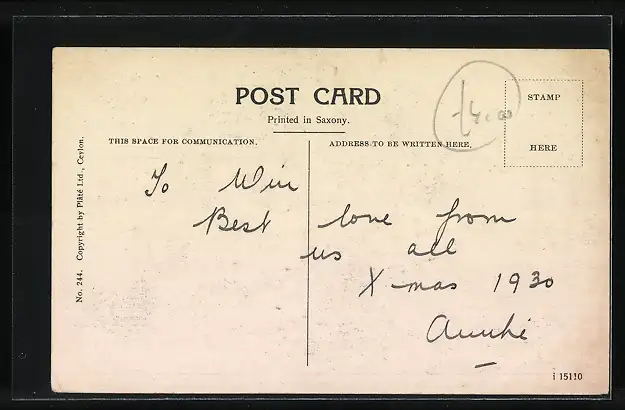 POST CARD
Printed in Saxony.
THIS SPACE FOR COMMUNICATION.
ADDRESS TO BE WRITTEN HERE.
STAMP
HERE
£4.00
To Win
Best love from
us all
X-mas 1930
Auntie
No. 244. Copyright by Plâté Ltd., Ceylon.
i 15110